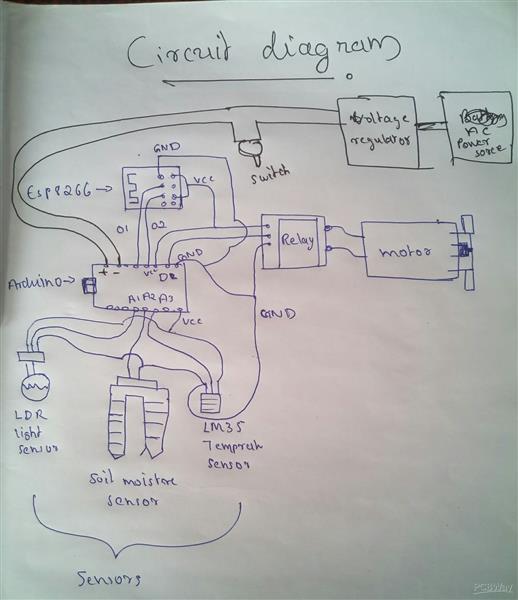 Circuit diagram
Voltage
regulator
AC
Power
source
GND
VCC
Switch
Esp8266
01
02
Relay
motor
+ -
VCC
D2
GND
Arduino
A1 A2 A3
VCC
GND
LDR
light
sensor
soil moisture
sensor
LM35
Tempratr
sensor
Sensors
PCBWay